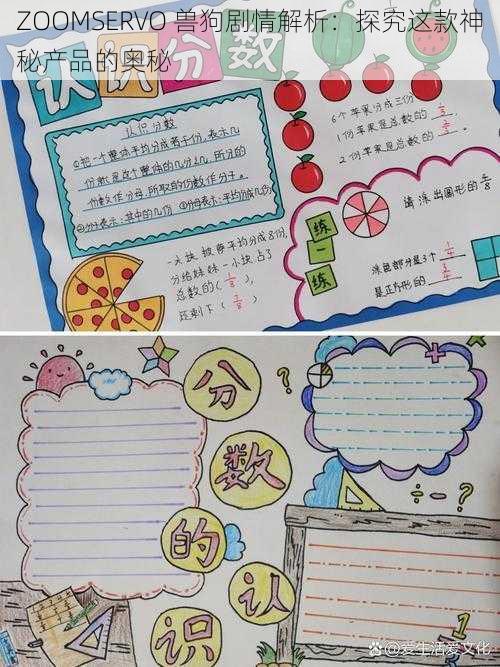 ZOOMSERVO 兽狗剧情解析：探究这款神
秘产品的奥秘
认识分数
认识分数
①把一个整体平均分成若干份,表示几
份就是这个整体的几分之几,所分的
份数作分母,所取的份数作分子。
②分子表示:其中的几份 ③分母表示:平均分成几份
6个苹果分成三份
1份苹果是总数的
2份苹果是总数的
一大块披萨平均分成8份,
分给妹妹一小块占了
总数的(1/8),
还剩下(7/8)
练一练
请涂出图形的
涂色部分是3个1/4
是正方形的3/4
分数的认识
?
?
+
÷-?
1
爱生活爱文化